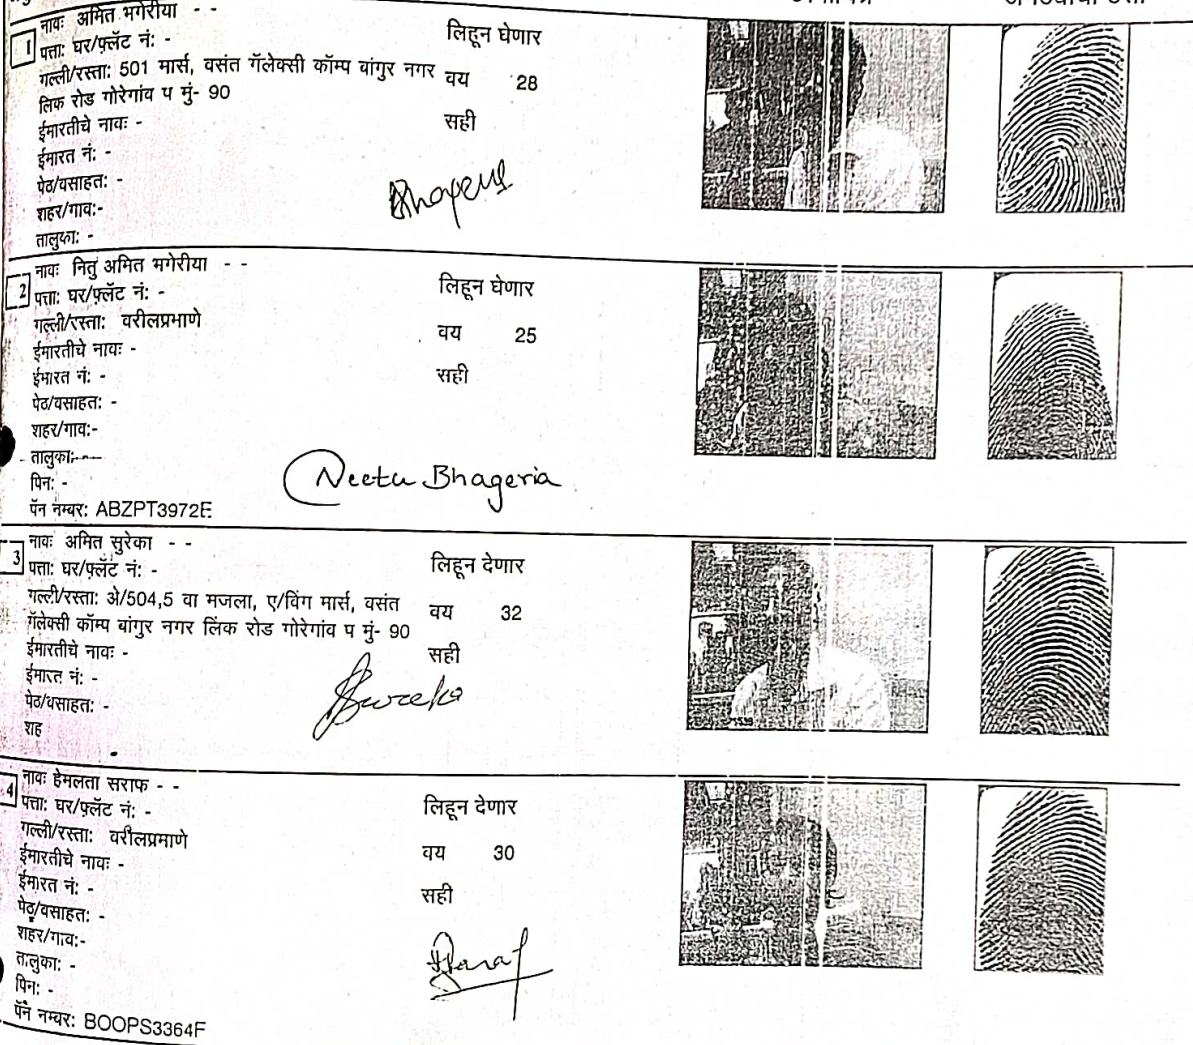 नावः अमित भगेरीया - -
1
पत्ताः घर/फ्लॅट नं: -
गल्ली/रस्ताः 501 मार्स, वसंत गॅलेक्सी कॉम्प बांगुर नगर
लिंक रोड गोरेगांव प मुं- 90
ईमारतीचे नावः -
ईमारत नं: -
पेठ/वसाहतः -
शहर/गावः-
तालुकाः -
लिहून घेणार
वय 28
सही
नावः नितु अमित भगेरीया - -
2
पत्ताः घर/फ्लॅट नं: -
गल्ली/रस्ताः वरीलप्रभाणे
ईमारतीचे नावः -
ईमारत नं: -
पेठ/वसाहतः -
शहर/गावः-
तालुकाः-
पिनः -
पॅन नम्बरः ABZPT3972E
लिहून घेणार
वय 25
सही
Neetu Bhageria
नावः अमित सुरेका - -
3
पत्ताः घर/फ्लॅट नं: -
गल्ली/रस्ताः अे/504,5 वा मजला, ए/विंग मार्स, वसंत
गॅलेक्सी कॉम्प बांगुर नगर लिंक रोड गोरेगांव प मुं- 90
ईमारतीचे नावः -
ईमारत नं: -
पेठ/वसाहतः -
शह
लिहून देणार
वय 32
सही
Sureka
नावः हेमलता सराफ - -
4
पत्ताः घर/फ्लॅट नं: -
गल्ली/रस्ताः वरीलप्रमाणे
ईमारतीचे नावः -
ईमारत नं: -
पेठ/वसाहतः -
शहर/गावः-
तालुकाः -
पिनः -
पॅन नम्बरः BOOPS3364F
लिहून देणार
वय 30
सही